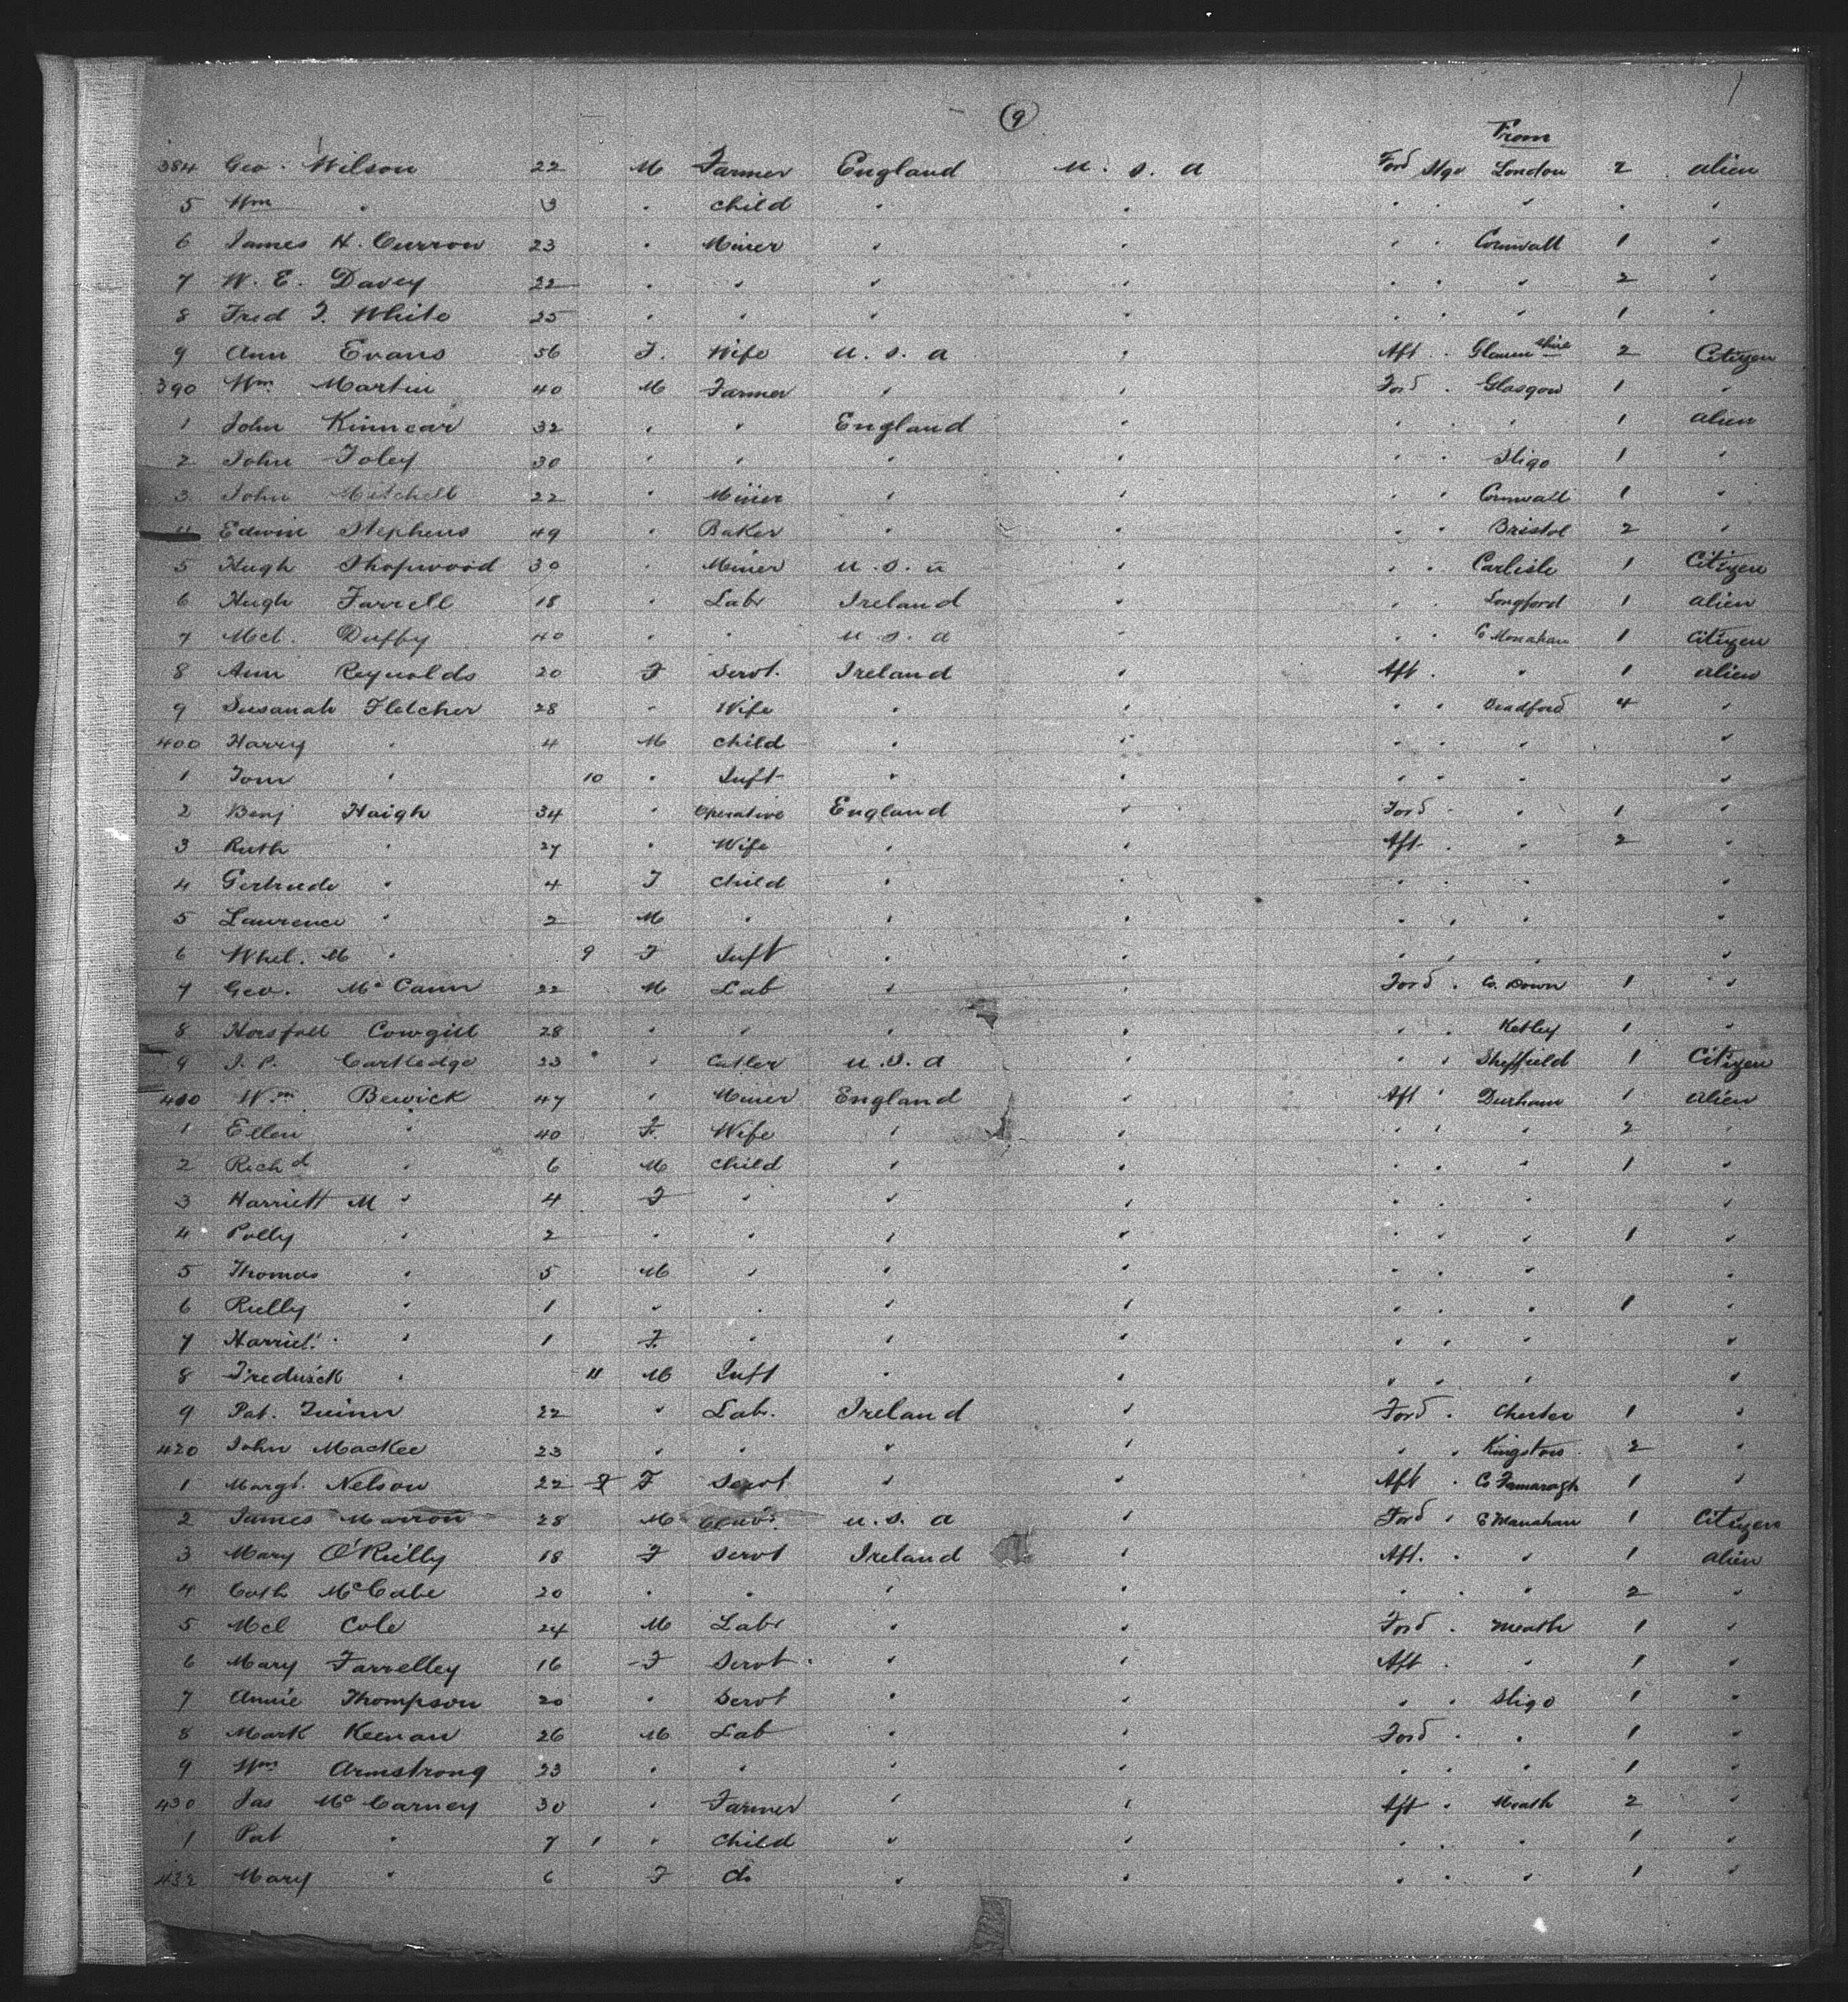 (9)
From
384 Geo. Wilson 22 M Farmer England U.S.A Ford Stge London 2 alien
5 Wm " 3 " child " " " " " " "
6 James H. Curnow 23 " Miner " " " " Cornwall 1 "
7 W. E. Davey 22 " " " " " " " 2 "
8 Fred J. White 25 " " " " " " " 1 "
9 Ann Evans 56 F. Wife U.S.A " Aft " 2 Citizen
390 Wm Martin 40 M Farmer " " Ford " Glasgow 1 "
1 John Kinnear 32 " " England " " " " 1 alien
2 John Foley 30 " " " " " " Sligo 1 "
3 John Mitchell 22 " Miner " " " " Cornwall 1 "
4 Edwin Stephens 49 " Baker " " " " Bristol 2 "
5 Hugh 30 " Miner U.S.A " " " Carlisle 1 Citizen
6 Hugh Farrell 18 " Labr Ireland " " " Longford 1 alien
7 Mcl. Duffy 40 " " U.S.A " " " C Monahan 1 Citizen
8 Ann Reynolds 20 F Servt. Ireland " Aft " " 1 alien
9 Susanah Fletcher 28 " Wife " " " " Bradford 4 "
400 Harry " 4 M child " " " " " "
1 Tom " 10 " Inft " " " " " "
2 Benj Haigh 34 " Operative England " Ford " " 1 "
3 Ruth " 27 " Wife " " Aft " " 2 "
4 Gertrude " 4 F child " " " " " "
5 Laurence " 2 M " " " " " " "
6 M " 9 F Inft " " " " " "
7 Geo. McCann 22 M Lab " " Ford " Co. Down 1 "
8 Horsfall Cowgill 28 " " " " " " 1 "
9 J. P. Cartledge 23 " Cutler U.S.A " " " Sheffield 1 Citizen
410 Wm Bewick 47 " Miner England " Aft " Durham 1 alien
1 Ellen " 40 F. Wife " " " " " 2 "
2 Richd " 6 M child " " " " " 1 "
3 Harriett M " 4 F " " " " " " "
4 Polly " 2 " " " " " " " 1 "
5 Thomas " 5 M " " " " " " "
6 " 1 " " " " " " " 1 "
7 Harriet. " 1 F. " " " " " " "
8 Fredrick " 11 M Inft " " " " " "
9 Pat. Quinn 22 " Lab. Ireland " Ford " Chester 1 "
420 John MacKee 23 " " " " " " 2 "
1 Margt. Nelson 22 F F Servt " " Aft " 1 "
2 James Marron 28 M U.S.A " Ford " C Monahan 1 Citizen
3 Mary O'Rielly 18 F Servt Ireland " Aft. " " 1 alien
4 Cath McCabe 20 " " " " " " " 2 "
5 Mcl Cole 24 M Labr " " Ford " Meath 1 "
6 Mary Farrelley 16 F Servt " " Aft " " 1 "
7 Annie Thompson 20 " Servt " " " " Sligo 1 "
8 Mark Keenan 26 M Lab " " Ford " " 1 "
9 Wm Armstrong 23 " " " " " " " 1 "
430 Jas McCarney 30 " Farmer " " Aft " Meath 2 "
1 Pat " 7 1 " child " " " " " 1 "
432 Mary " 6 F do " " " " " 1 "